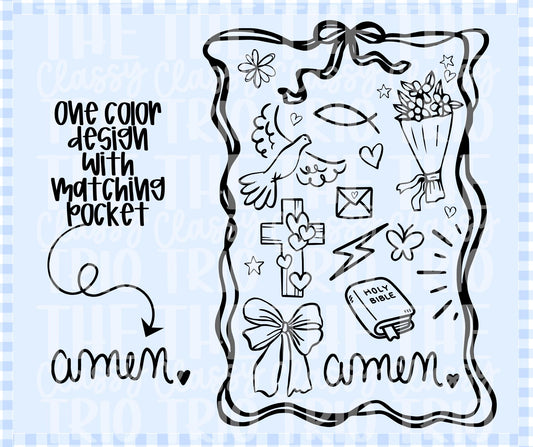 THE
Classy
TRIO
one color
design
with
matching
pocket
amen.
HOLY
BIBLE
amen.